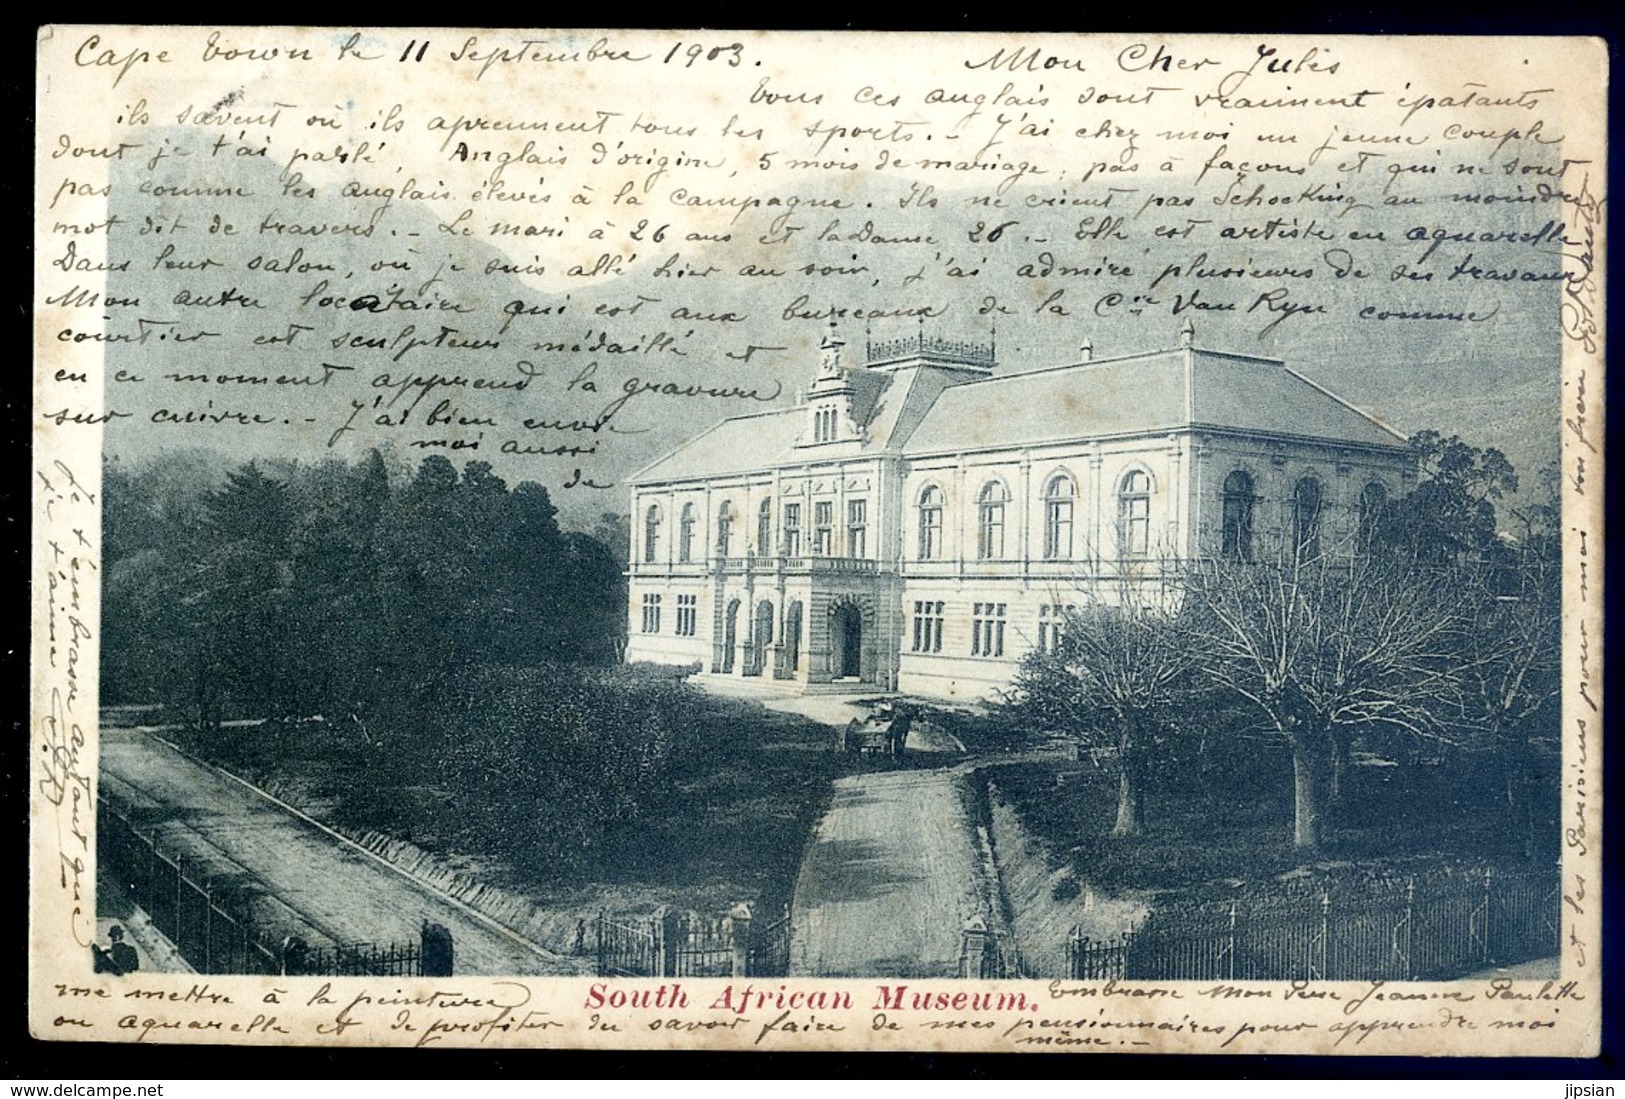 Cape Town le 11 Septembre 1903.
Mon Cher Jules
Tous ces anglais sont vraiment épatants
ils savent où ils aprennent tous les sports. - J'ai chez moi un jeune couple
dont je t'ai parlé, Anglais d'origine, 5 mois de mariage, pas à façons et qui ne sont
pas comme les anglais élevés à la campagne. Ils ne crient pas Schocking au moindre
mot dit de travers. - Le mari à 26 ans et la Dame 26. - Elle est artiste en aquarelle
Dans leur salon, où je suis allé hier au soir, j'ai admiré plusieurs de ses travaux
Mon autre locataire qui est aux bureaux de la Cie Van Ryn comme
courtier est sculpteur médaillé et
en ce moment apprend la gravure
sur cuivre. - J'ai bien envie
moi aussi
de
me mettre à la peinture
ou aquarelle et de profiter du savoir faire de mes pensionnaires pour apprendre moi
même. -
South African Museum.
Embrasse Mon Père Jeanne Paulette
et les Parisiens pour moi ton frère
Je t'embrasse autant que
je t'aime
jipsian